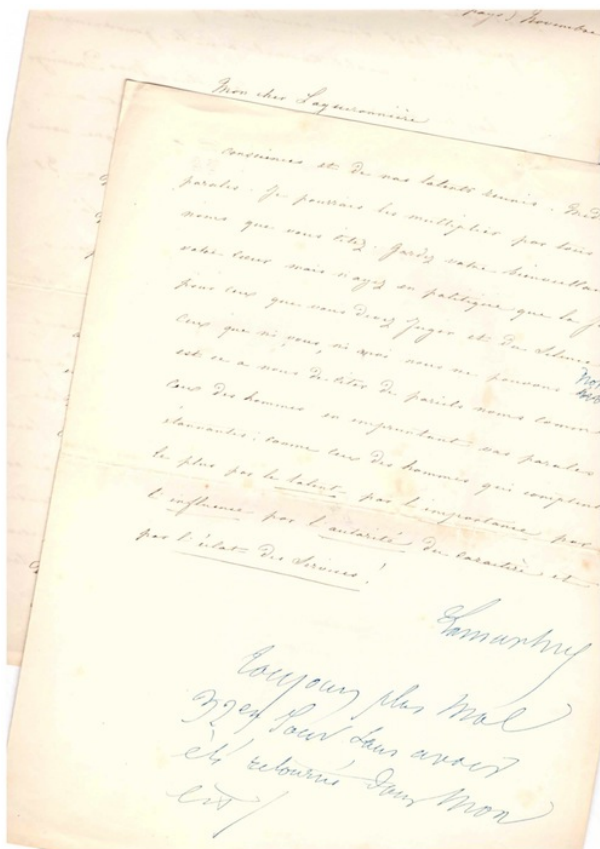 pays) Novembre
Mon cher Laguéronnière
consciences et de nos talents réunis.
paroles. Je pourrais les multiplier par tous
noms que vous citez. Gardez votre bienveillan
votre cœur mais n'ayez en politique que la
pour ceux que vous devez juger et du silence
ceux que ni vous, ni moi nous ne pouvons
est ce a nous de citer de pareils noms comme
ceux des hommes en empruntant vos paroles
étonnantes: comme ceux des hommes qui comptent
le plus par le talent par l'importance par
l'influence par l'autorité du caractère et
par l'éclat des Services!
Lamartine
toujours plus mal
32e jour sans avoir
été retourné dans mon
lit/